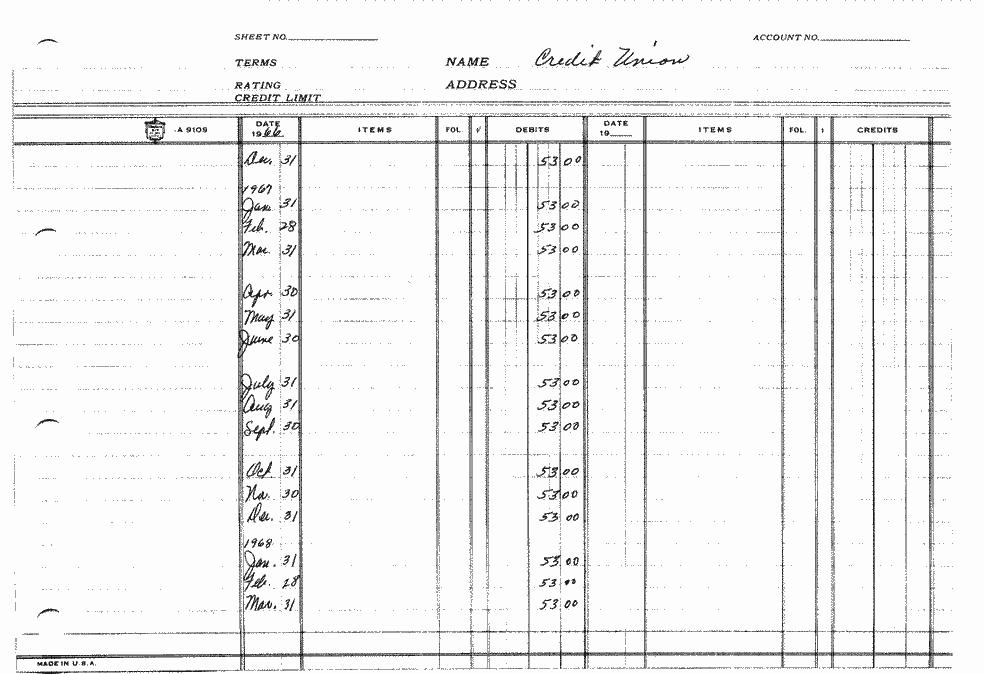 SHEET NO. ACCOUNT NO.
TERMS NAME Credit Union
RATING ADDRESS
CREDIT LIMIT
A 9109 DATE 1966 ITEMS FOL. √ DEBITS DATE 19 ITEMS FOL. √ CREDITS
Dec. 31 53 00
1967
Jan. 31 53 00
Feb. 28 53 00
Mar. 31 53 00
Apr 30 53 00
May 31 53 00
June 30 53 00
July 31 53 00
Aug 31 53 00
Sept. 30 53 00
Oct 31 53 00
No. 30 53 00
Dec. 31 53 00
1968
Jan. 31 53 00
Feb. 28 53 00
Mar. 31 53 00
MADE IN U.S.A.